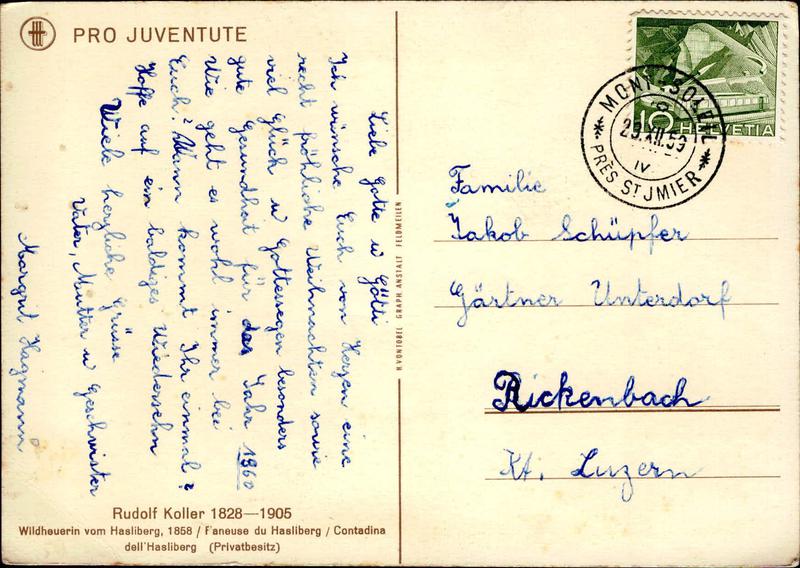 PRO JUVENTUTE
Liebe Gotte u Götti
Ich wünsche Euch von Herzen eine
recht fröhliche Weihnachten sowie
viel Glück u Gottessegen besonders
gute Gesundheit für das Jahr 1960
Wie geht es wohl immer bei
Euch? Wann kommt Ihr einmal?
Hoffe auf ein baldiges Wiedersehn
Viele herzliche Grüsse
Vater, Mutter u Geschwister
Margrit Hagmann
Rudolf Koller 1828—1905
Wildheuerin vom Hasliberg, 1858 / Faneuse du Hasliberg / Contadina
dell'Hasliberg (Privatbesitz)
H. VONTOBEL GRAPH. ANSTALT FELDMEILEN
10 HELVETIA
MONT-SOLEIL
23.XII.59
IV
PRÈS ST JMIER
Familie
Jakob Schüpfer
Gärtner Unterdorf
Rickenbach
Kt. Luzern